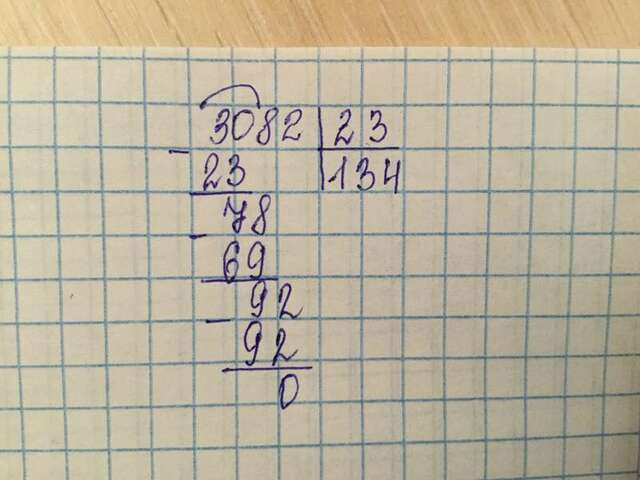 3082 | 23
- 23 | 134
78
- 69
92
- 92
0